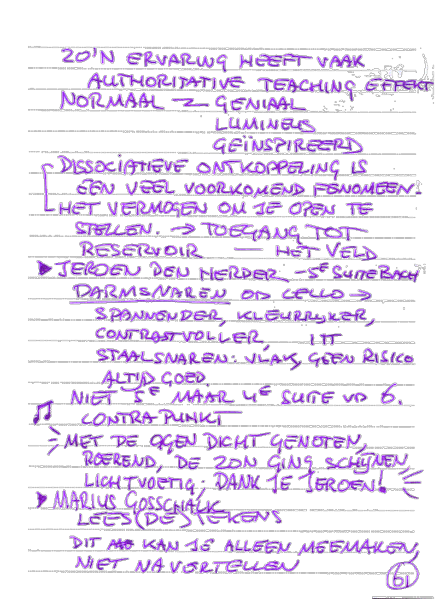 ZO'N ERVARING HEEFT VAAK
AUTHORITATIVE TEACHING EFFEKT
NORMAAL ~ GENIAAL
LUMINEUS
GEÏNSPIREERD
DISSOCIATIEVE ONTKOPPELING IS
EEN VEEL VOORKOMEND FENOMEEN.
HET VERMOGEN OM JE OPEN TE
STELLEN. → TOEGANG TOT
RESERVOIR — HET VELD
▶ JEROEN DEN HERDER - 5E SUITE BACH
DARMSNAREN OP CELLO →
SPANNENDER, KLEURRIJKER,
CONTRASTVOLLER,
STAALSNAREN: VLAK, GEEN RISICO
ALTIJD GOED.
NIET 5E MAAR 4E SUITE VD 6.
♫ CONTRAPUNKT
MET DE OGEN DICHT GENOTEN,
ROEREND, DE ZON GING SCHIJNEN,
LICHTVOETIG; DANK JE JEROEN!
▶ MARIUS GOSSCHALK
LEES(DE)TEKENS
DIT KAN JE ALLEEN MEEMAKEN,
NIET NAVERTELLEN
61